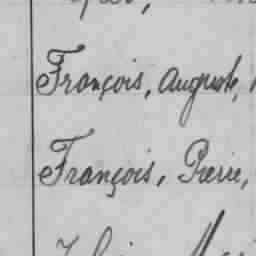 François, Auguste,
François, Pierre,